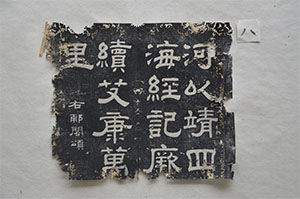 八
河以靖四
海經記厥
續艾康萬
里
右郙閣頌